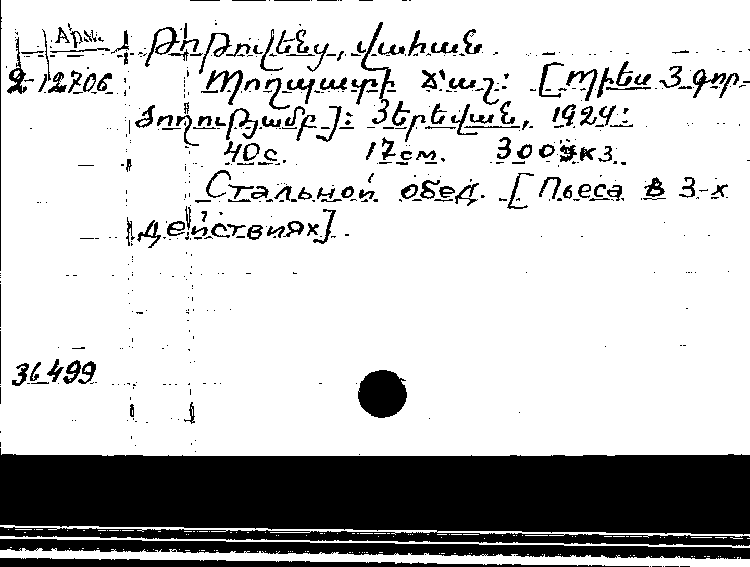 Арм.
2-12706
Թոթովենց, Վահան.
Պողպատի ճաշ: [Պիես 3 գոր-
ծողությամբ]: Յերեվան, 1924:
40с. 17см. 300экз.
Стальной обед. [Пьеса в 3-х
действиях].
36499